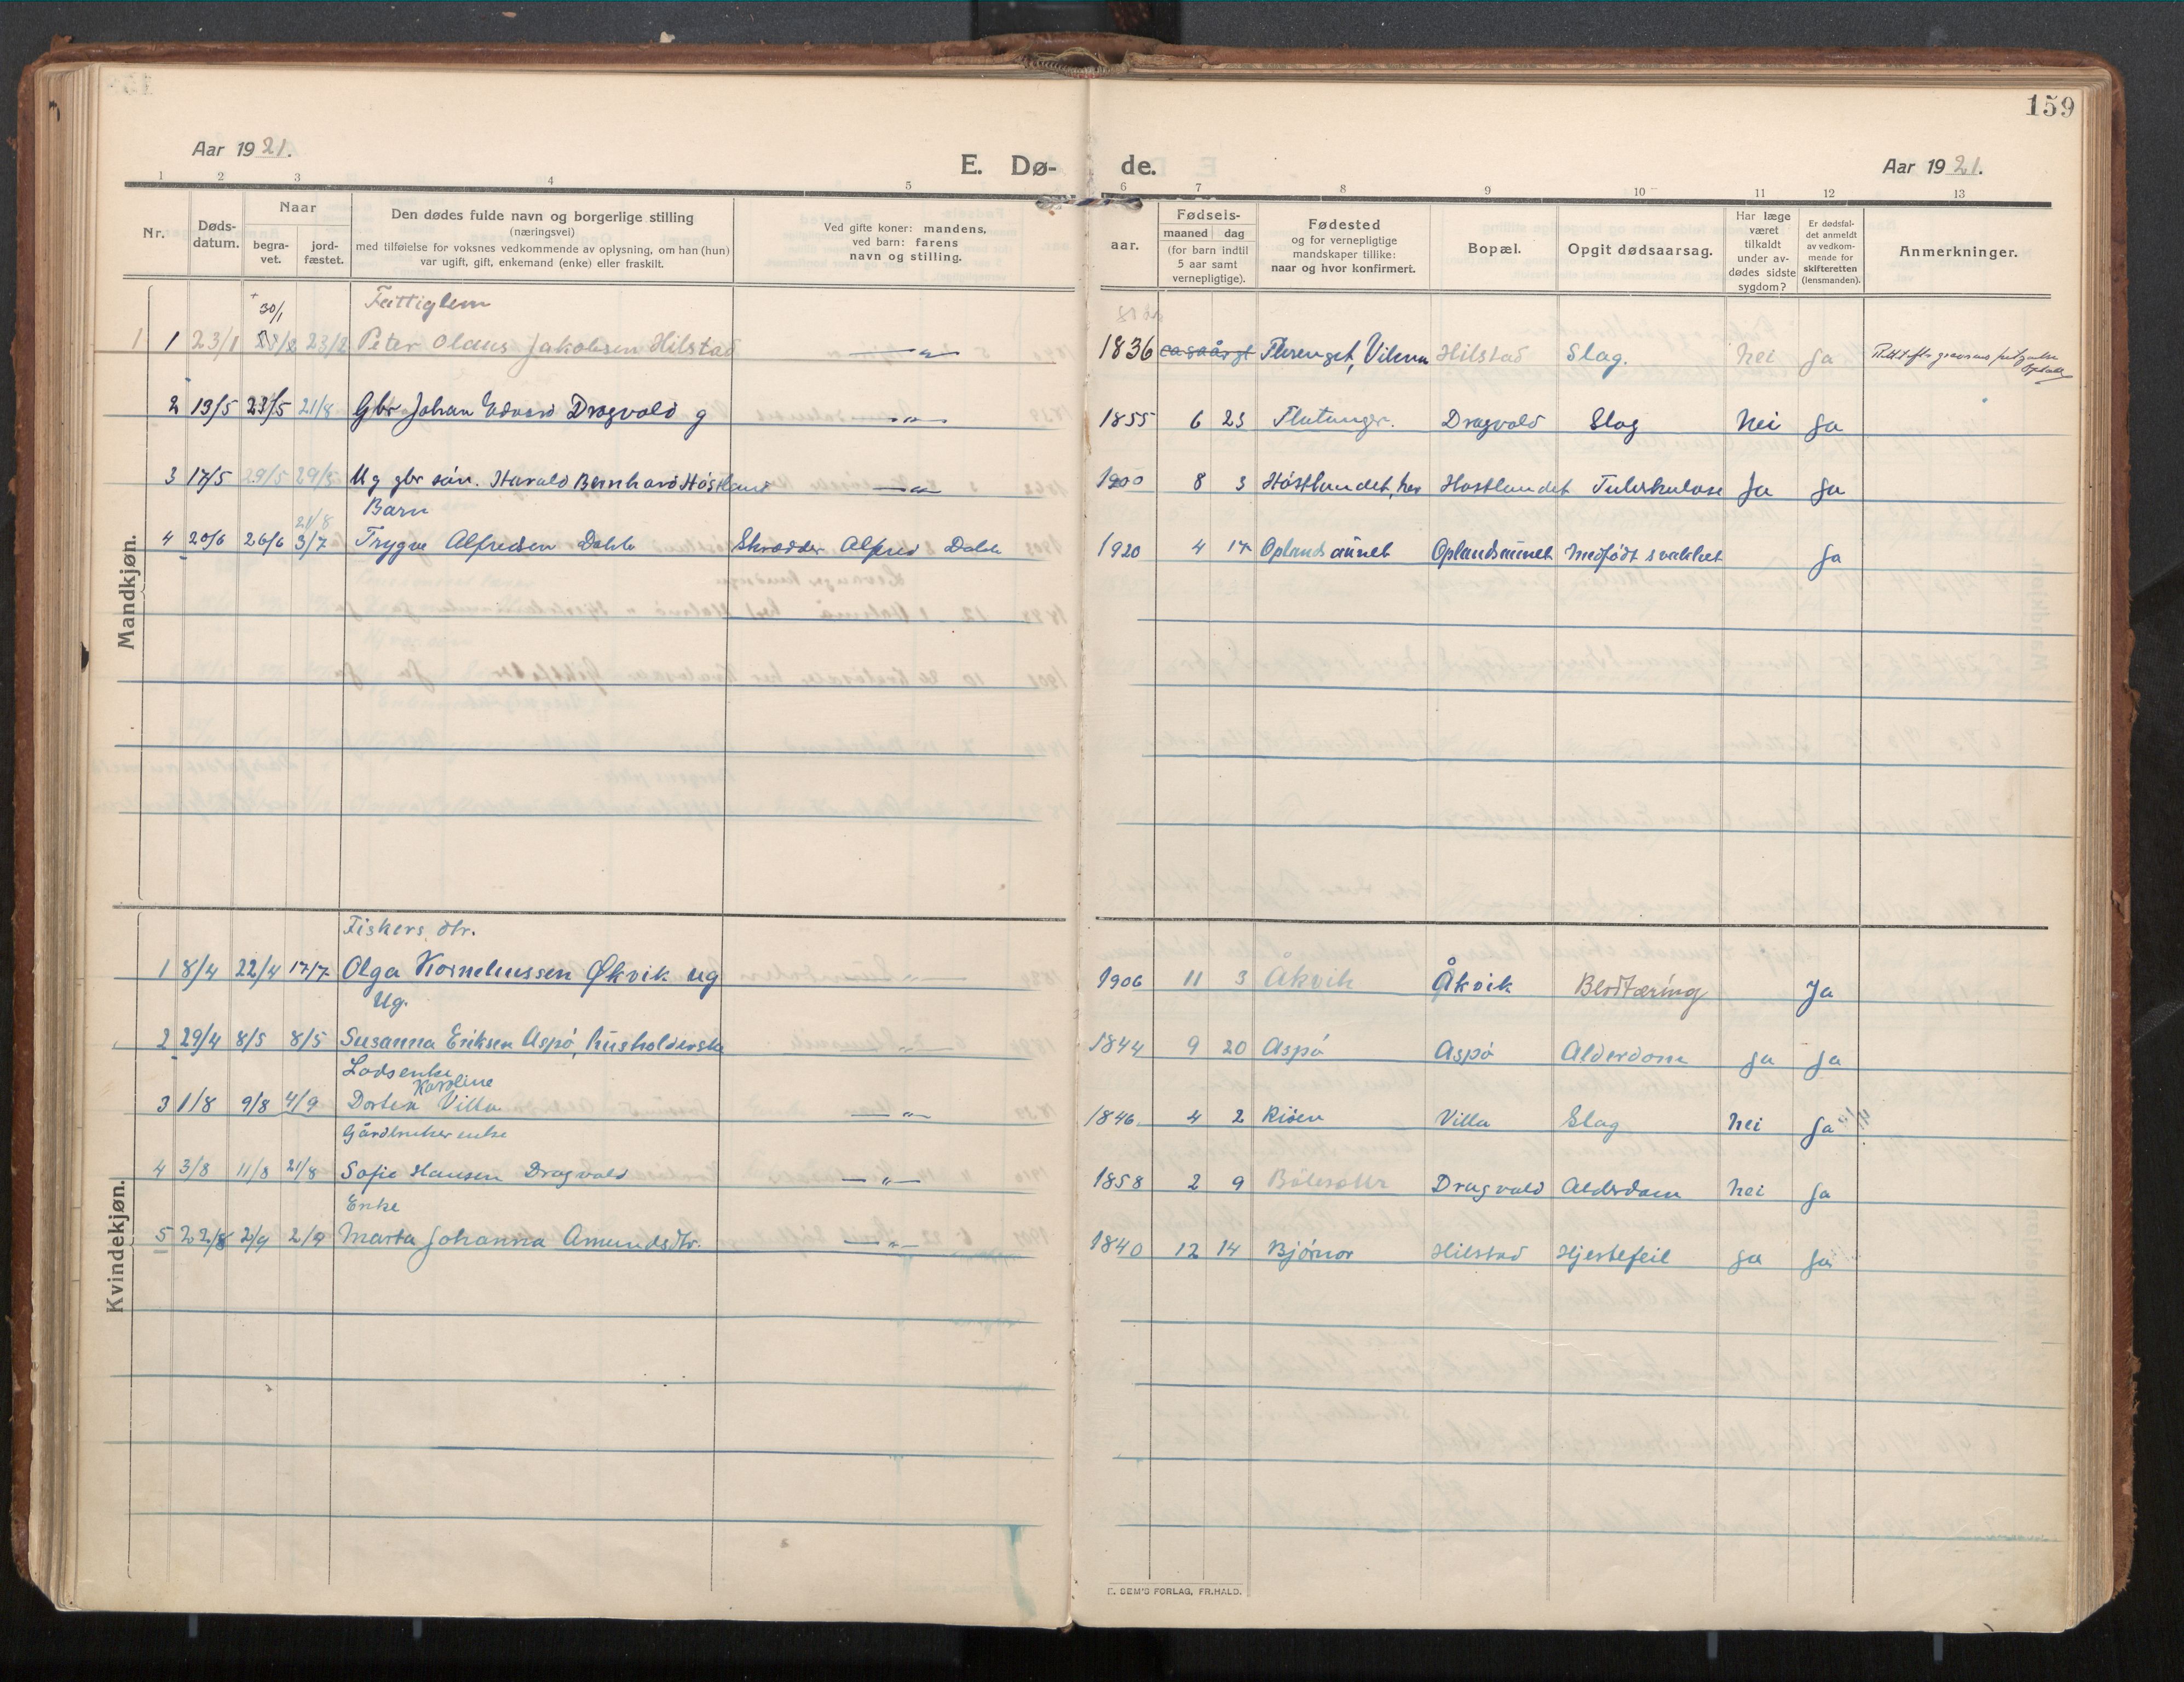 159
Aar 1921.
E. Dø-
de.
Aar 1921.
1 2 3 4 5 6 7 8 9 10 11 12 13
Nr.
Døds-
datum.
Naar
begra-
vet.
jord-
fæstet.
Den dødes fulde navn og borgerlige stilling
(næringsvei)
med tilføielse for voksnes vedkommende av oplysning, om han (hun)
var ugift, gift, enkemand (enke) eller fraskilt.
Ved gifte koner: mandens,
ved barn: farens
navn og stilling.
aar.
Fødsels-
maaned dag
(for barn indtil
5 aar samt
vernepligtige).
Fødested
og for vernepligtige
mandskaper tillike:
naar og hvor konfirmert.
Bopæl.
Opgit dødsaarsag.
Har læge
været
tilkaldt
under av-
dødes sidste
sygdom?
Er dødsfal-
det anmeldt
av vedkom-
mende for
skifteretten
(lensmanden).
Anmerkninger.
Mandkjøn.
30/1 Fattiglem
1 1 23/1 23/2 Peter Olaus Jakobsen Hilstad — " — 1836 Flerenget, Vikna Hilstad Slag. Nei Ja
2 13/5 23/5 21/8 Gbr Johan Edvard Dragvold g — " — 1855 6 23 Flatanger. Dragvold Slag Nei Ja
3 17/5 29/5 29/5 Ug gbr søn. Harald Bernhard Høstland — " — 1900 8 3 Høstlandet, her Høstlandet Tuberkulose Ja Ja
21/8 Barn
4 20/6 26/6 3/7 Trygve Alfredsen Dahle Skrædder Alfred Dahle 1920 4 17 Oplandsaunet Oplandsaunet Medfødt svakhet Ja
Kvindekjøn.
Fiskers dtr.
1 8/4 22/4 17/7 Olga Korneliussen Økvik ug — " — 1906 11 3 Åkvik Åkvik Blodtæring Ja
Ug.
2 29/4 8/5 8/5 Susanna Eriksen Aspø, husholderske — " — 1844 9 20 Aspø Aspø Alderdom Ja Ja
Lodsenke
Karoline
3 1/8 9/8 4/9 Dortea Villa — " — 1846 4 2 Risen Villa Slag Nei Ja
Gårdbruker enke
4 3/8 11/8 21/8 Sofie Hansen Dragvold — " — 1858 2 9 Dragvold Alderdom Nei Ja
Enke
5 22/8 2/9 2/9 Marta Johanna Amundsdtr. — " — 1840 12 14 Bjørnor Hilstad Hjertefeil Ja Ja
E. SEM'S FORLAG, FR.HALD.